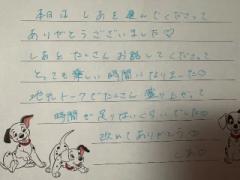 本日は しあを選んでくださって
ありがとうございました♡
しあと たくさん お話してくださって
とっても楽しい時間になりました♡
地元トークでたくさん盛り上がって
時間が足りないくらいでした♡
改めてありがとう♡
しあ♡